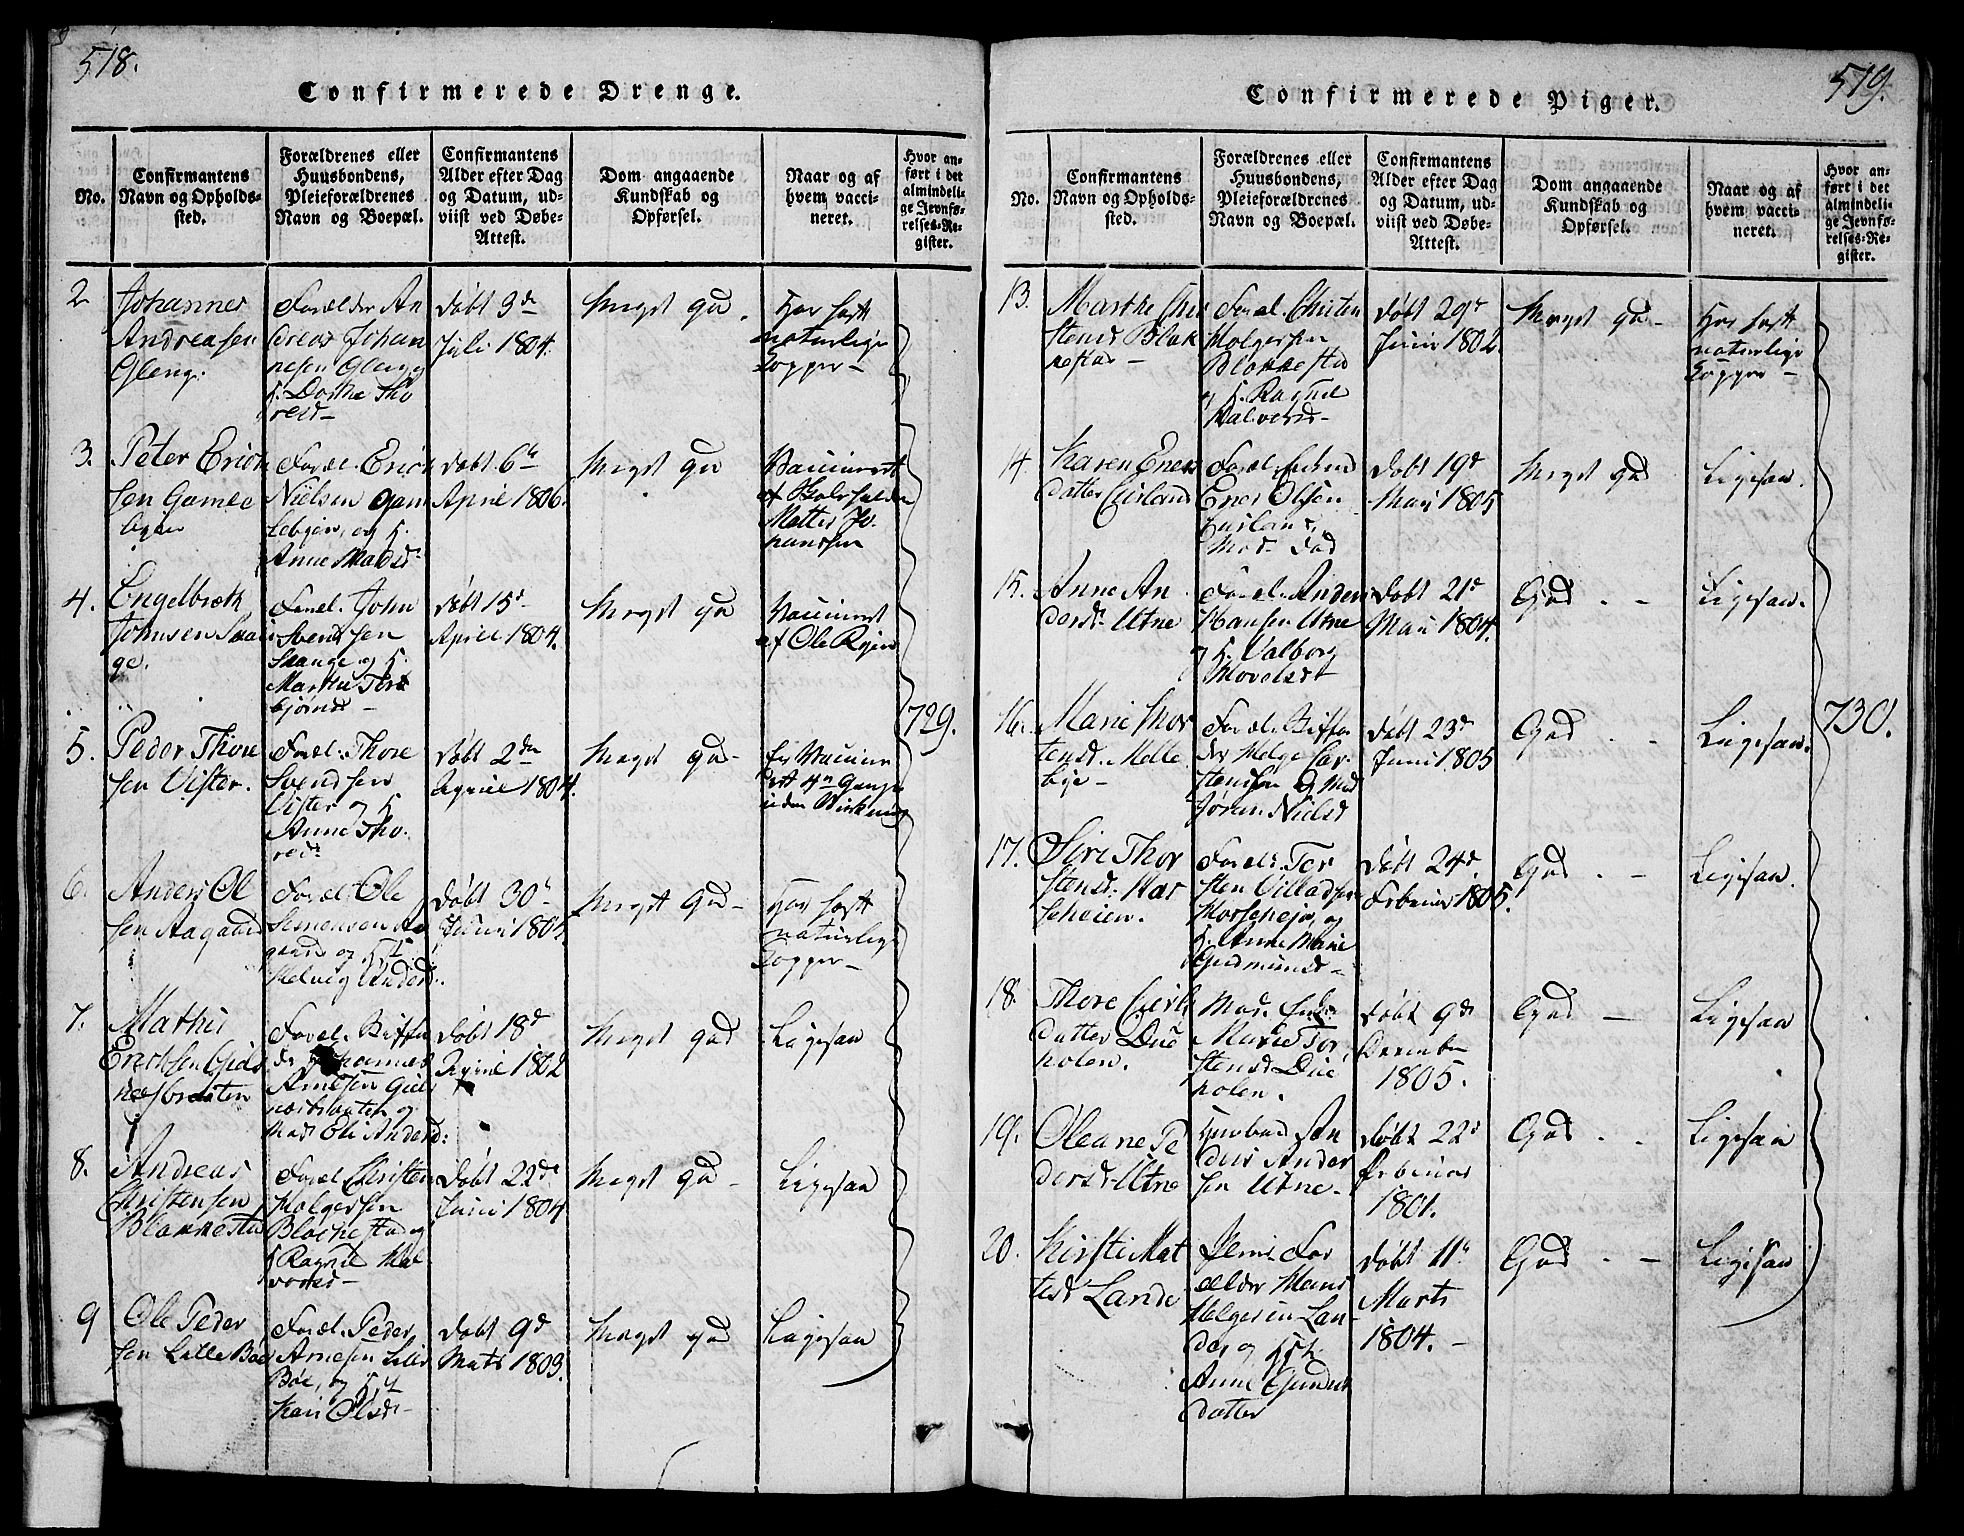 518.
Confirmerede Drenge.
No.
Confirmantens
Navn og Opholds-
sted.
Forældrenes eller
Huusbondens,
Pleieforældrenes
Navn og Boepæl.
Confirmantens
Alder efter Dag
og Datum, ud-
viist ved Døbe-
Attest.
Dom angaaende
Kundskab og
Opførsel.
Naar og af
hvem vacci-
neret.
Hvor an-
ført i det
almindeli-
ge Jevnfø-
relses-Re-
gister.
2
Johannes
Andreasen
Gleng.
Forælder An
dreas Johan
nesen Gleng
Dorthe Tho
resd-
døbt 3de
Juli 1804.
Meget gd.
Har havt
naturlige
Kopper-
3.
Peter Erich
sen Gamle
bÿen
Foræl. Erich
Nielsen Gam
lebÿen, og H.
Anne
døbt 6te
April 1806.
Meget gd
Vaccineret
af
Matter Jo
hansen
4.
Engelbrekt
Johnsen Skan
ge.
Foræl. John
Svendsen
Skange og H.
Marthe Tor
bjørnsd-
døbt 15d
April 1804.
Meget gd
Vaccineret
af Ole Ryen
5.
Peder Thore
sen Vister.
Foræl. Thore
Svendsen
Vister og H
Anne Tho
resd:
døbt 2den
April 1804.
Meget god-
Er Vaccine
ret 4re Gange
uden Virkning
729.
6.
Anders Ol
sen Aagaard
Foræl. Ole
Simensen Aa
gaard og
Helvig Anders
døbt 30d
Juni 1805.
Meget God-
Har havt
naturlige
Kopper-
7.
Mathis
Erichsen
Foræl.
Johannes
Arnesen
og
Mod: Eli Andersd:
døbt 18d
April 1802
Meget god
Ligesaa
8.
Andreas
Christensen
Blakkestad
Foræl. Christen
Holgersen
Blakkestad og
H Ragnil Hal
vorsd-
døbt 22de
Juni 1804
Meget gd-
Ligesaa
9
Ole Peder
sen Lille Bøe
Foræl. Peder
Arnesen Lille
Bøe, og H. H
Kari Olsd-
døbt 9d
Mats 1803.
Meget god
Ligesaa
519.
Confirmerede Piger.
No.
Confirmantens
Navn og Opholds-
sted.
Forældrenes eller
Huusbondens,
Pleieforældrenes
Navn og Boepæl.
Confirmantens
Alder efter Dag
og Datum, ud-
viist ved Døbe-
Attest.
Dom angaaende
Kundskab og
Opførsel.
Naar og af
hvem vacci-
neret.
Hvor an-
ført i det
almindeli-
ge Jevnfø-
relses-Re-
gister.
13.
Marthe Chri
stensd Blak
kestad-
Foræl. Christen
Holgersen
Blakkestad
og H. Ragnil
Halvorsd-
døbt 29d
Juni 1802.
Meget gd-
Har havt
naturlige
Kopper-
14.
Karen Ener
datter
Foræl.
Ener Olsen
Mod-
døbt 19d
Marj 1805
Meget god
Ligesaa.
15.
Anne An
dersd: Utne
Foræl. Anders
Hansen Utne
og H. Valborg
døbt 21d
Mai 1804.
God - -
Ligesaa.
16.
Marie Mor
tensd. Melle
bye-
Foræl.
Helge Car
stensen og Mod
Jøran Nielsd
døbt 23d
Juni 1805
God - -
Ligesaa.
730.
17.
Siri Thor
stensd: Har
seheien.
Foræl: Tor
sten Villadsen
og
H. Anne Marie
Gudmundsd-
døbt 24d.
Februar 1805.
God - -
Ligesaa.
18.
Thore
datter Due
holen.
Mod.
Marie Tor
stensd Due
holen.
døbt 9d
December
1805.
God -
Ligesaa
19.
Oleane Pe
dersd: Utne
Huusbond An
ders Ander
sen Utne-
døbt 22d
Februar
1801.
God - -
Ligesaa
20.
Kirsti Mat
tesd Lande
For
ælder Hans
Helgesen Lan
de, og
Anne Gunder
datter
døbt 11te
Marts
1804.-
God - -
Ligesaa